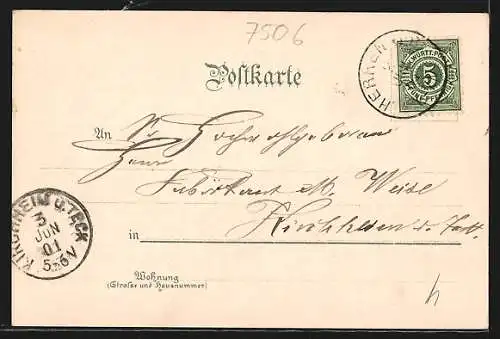 7506
Postkarte
K. WÜRTT. POST
5
FÜNF PFENNIG
HERREN
An Sr. Hochwohlgeboren
Herrn
Fabrikant M. Weise
in Kirchheim u. Teck.
KIRCHHEIM U. TECK
3
JUN
01
5-6V
Wohnung
(Straße und Hausnummer)
4